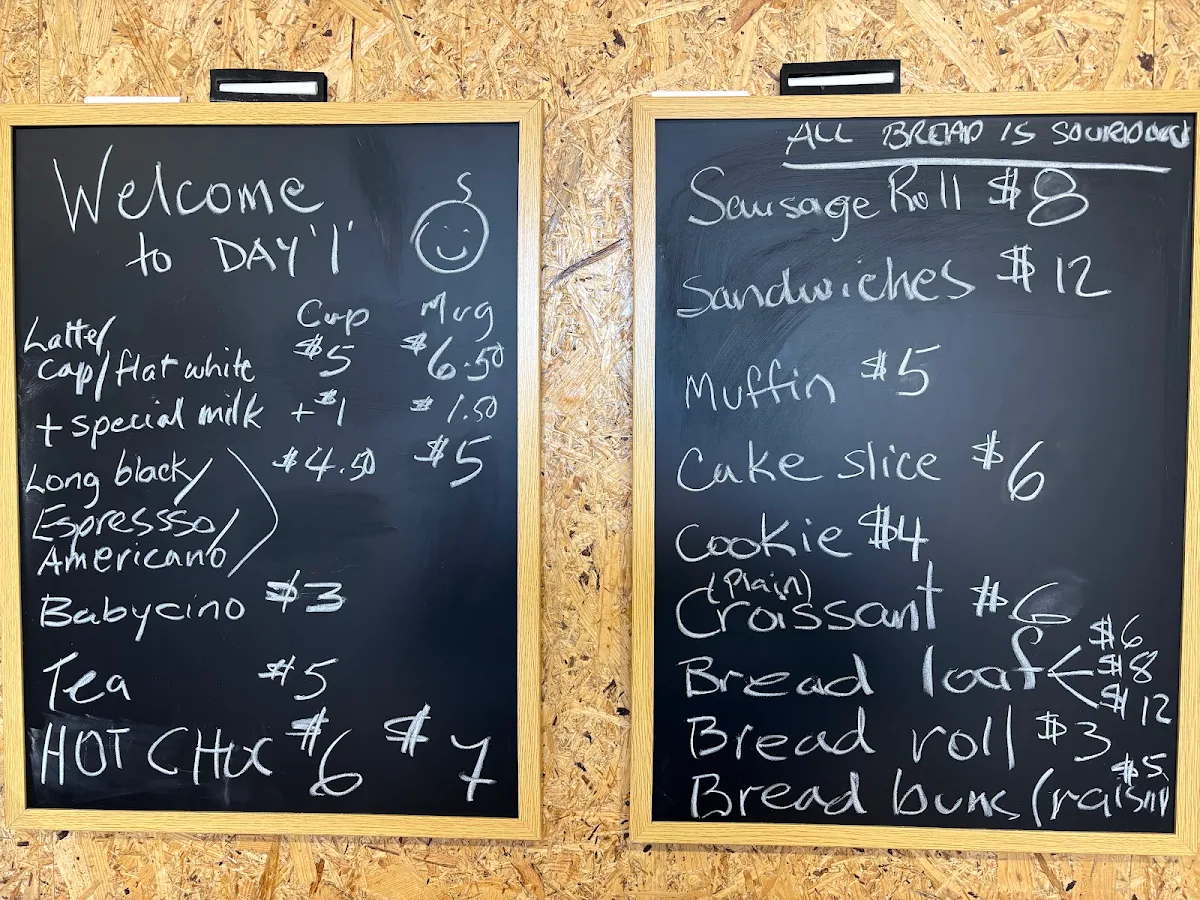 Welcome
to DAY '1'
Cup Mug
Latte/
cap/flat white $5 $6.50
+ special milk +$1 $1.50
Long black/ $4.50 $5
Espressso/
Americano
Babycino $3
Tea $5
HOT CHOC $6 $7
ALL BREAD IS SOURDOUGH
Sausage Roll $8
Sandwiches $12
Muffin $5
Cake slice $6
Cookie $4
(Plain)
Croissant $6
Bread loaf $6
$8
$12
Bread roll $3
Bread buns (raisin $5